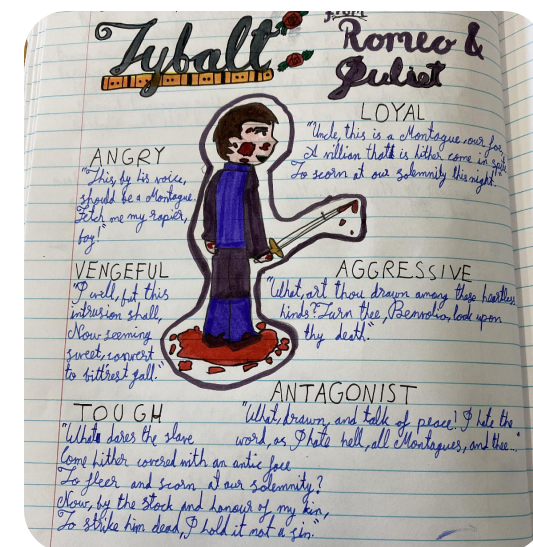 Tybalt
from
Romeo &
Juliet
LOYAL
"Uncle, this is a Montague, our foe,
A villian that is hither come in spite
To scorn at our solemnity this night."
ANGRY
"This, by his voice,
should be a Montague.
Fetch me my rapier,
boy!"
VENGEFUL
"I will, but this
intrusion shall,
Now seeming
sweet, convert
to bitt'rest gall."
AGGRESSIVE
"What, art thou drawn among these heartless
hinds? Turn thee, Benvolio, look upon
thy death."
ANTAGONIST
"What, drawn, and talk of peace! I hate the
word, as I hate hell, all Montagues, and thee..."
TOUGH
"What dares the slave
Come hither covered with an antic face
To fleer and scorn at our solemnity?
Now, by the stock and honour of my kin,
To strike him dead, I hold it not a sin."